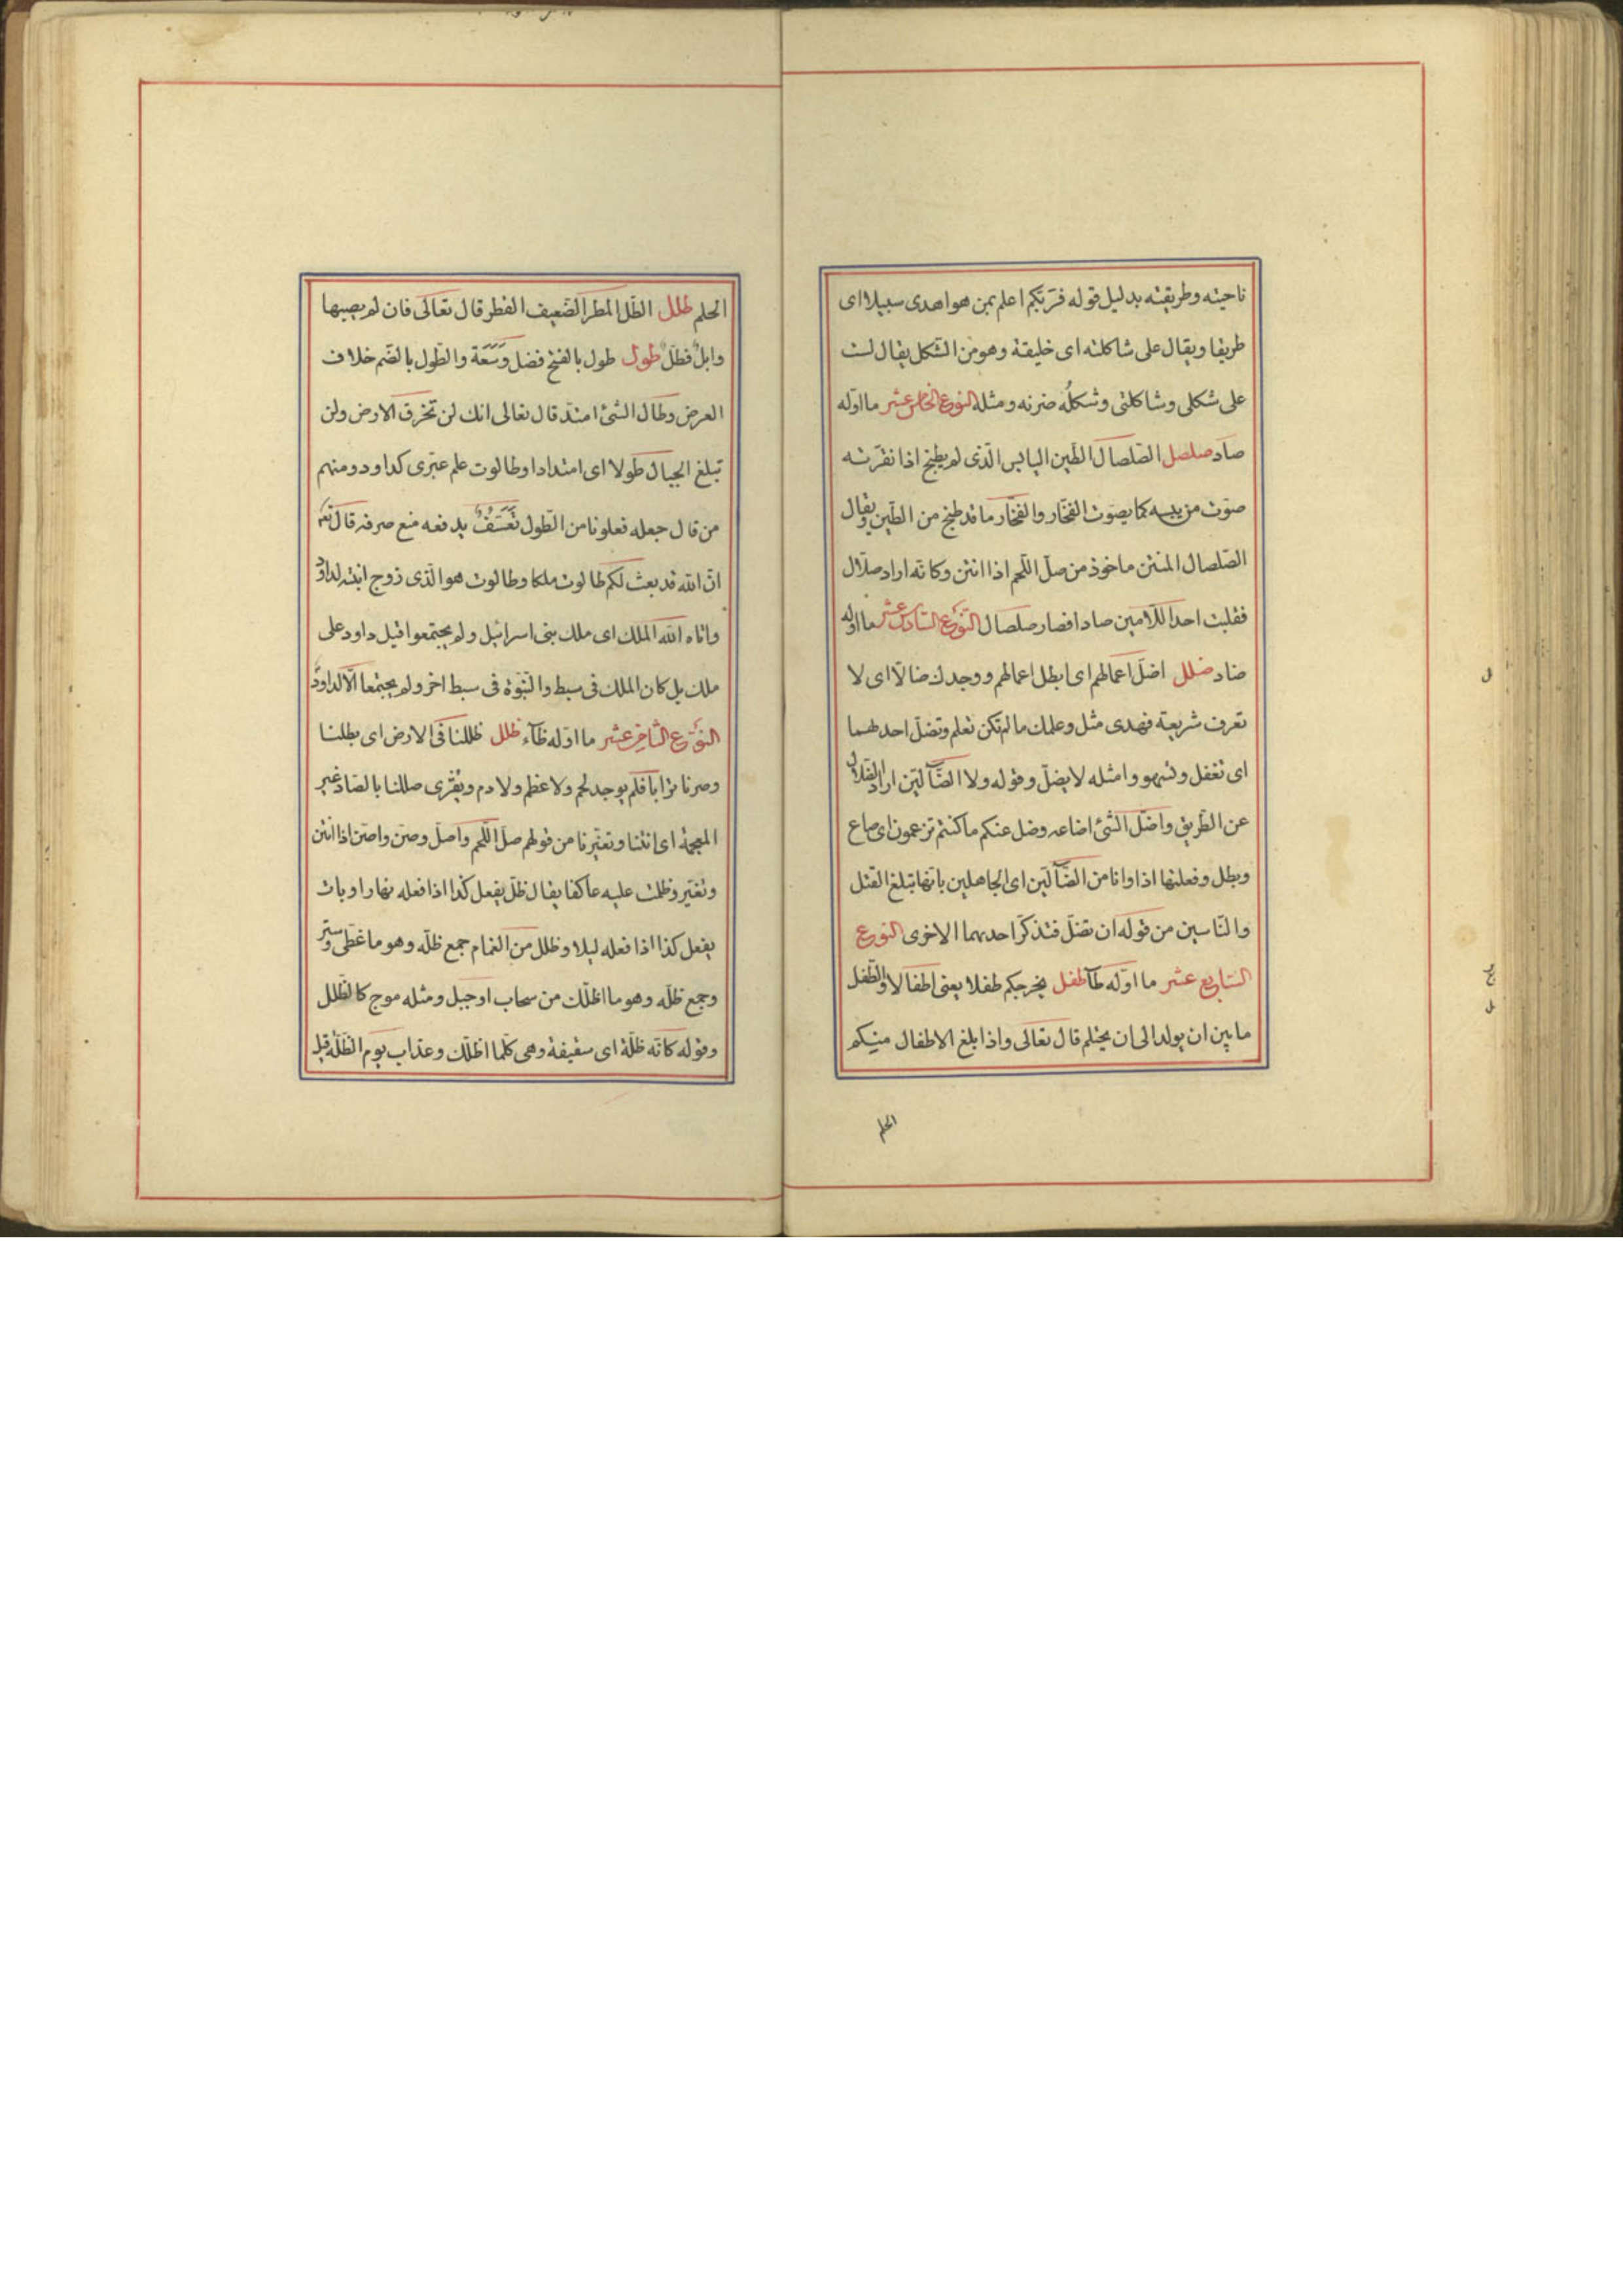 ناحيته وطريقته بدليل قوله فربّكم اعلم بمن هو اهدى سبيلا اى
طريقا ويقال على شاكلته اى خليقة وهو من الشّكل يقال لست
على شكلى وشاكلتى وشكله ضربه ومثله النوع الخامس عشر ما اوّله
صاد صلصل الصّلصال الطّين اليابس الّذى لم يطبخ اذا نقرته
صوّت من يبسه كما يصوّت الفخّار والفخّار ما قد طبخ من الطّين ويقال
الصّلصال المنتن ماخوذ من صلّ اللّحم اذا انتن وكانّه اراد صلّال
فقلبت احد اللّامين صادا فصار صلصال النّوع السّادس عشر ما اوله
ضاد ضلل اضلّ اعمالهم اى ابطل اعمالهم ووجدك ضالّا اى لا
تعرف شريعة فهدى مثل وعلمك ما لم تكن تعلم وتضلّ احدهما
اى تغفل وتسهو وامثله لا يضلّ وقوله ولا الضّآلّين اراد الضّلال
عن الطّريق واضلّ الشّئ اضاعه وضل عنكم ما كنتم تزعمون اى ضاع
وبطل وفعلتها اذا وانا من الضّآلّين اى الجاهلين بانّها تبلغ القتل
والنّاسين من قوله ان تضلّ فتذكّر احديهما الاخرى النوع
السّابع عشر ما اوّله طآ طفل يخرجكم طفلا يعنى اطفالا والطّفل
ما بين ان يولد الى ان يحتلم قال تعالى واذا بلغ الاطفال منكم
الحلم
الحلم طلل الطّلّ المطر الضّعيف القطر قال تعالى فان لم يصبها
وابلٌ فطلّ طول طول بالفتح فضل وسَعَة والطّول بالضّم خلاف
العرض وطال الشّئ امتدّ قال تعالى انك لن تخرق الارض ولن
تبلغ الجبال طولا اى امتدادا وطالوت علم عبرى كداود ومنهم
من قال جعله فعلوتا من الطّول تعسّف يدفعه منع صرفه قال تع
انّ الله قد بعث لكم طالوت ملكا وطالوت هو الّذى زوج ابنته لداود
واتاه الله الملك اى ملك بنى اسرائيل ولم يجتمعوا قبل داود على
ملك بل كان الملك فى سبط والنّبوّة فى سبط اخر ولم يجتمعا الّا لداود
النّوع الثّامن عشر ما اوّله ظآء ظلل ظللنا فى الارض اى بطلنا
وصرنا ترابا فلم يوجد لحم ولا عظم ولا دم ويُقرى صللنا بالصّاد غير
المعجمة اى انتنّا وتغيّرنا من قولهم صلّ اللّحم واصلّ وصنّ واصنّ اذا انتن
وتغيّر وظلت عليه عاكفا يقال ظلّ يفعل كذا اذا فعله نهارا وبات
يفعل كذا اذا فعله ليلا وظلل من الغمام جمع ظلّه وهو ما غطّى وستر
وجمع ظلّه وهو ما اظلّك من سحاب او جبل ومثله موج كالظّلل
وقوله كانّه ظلّة اى سقيفة وهى كلّما اظلّك وعذاب يوم الظّلّة قيل